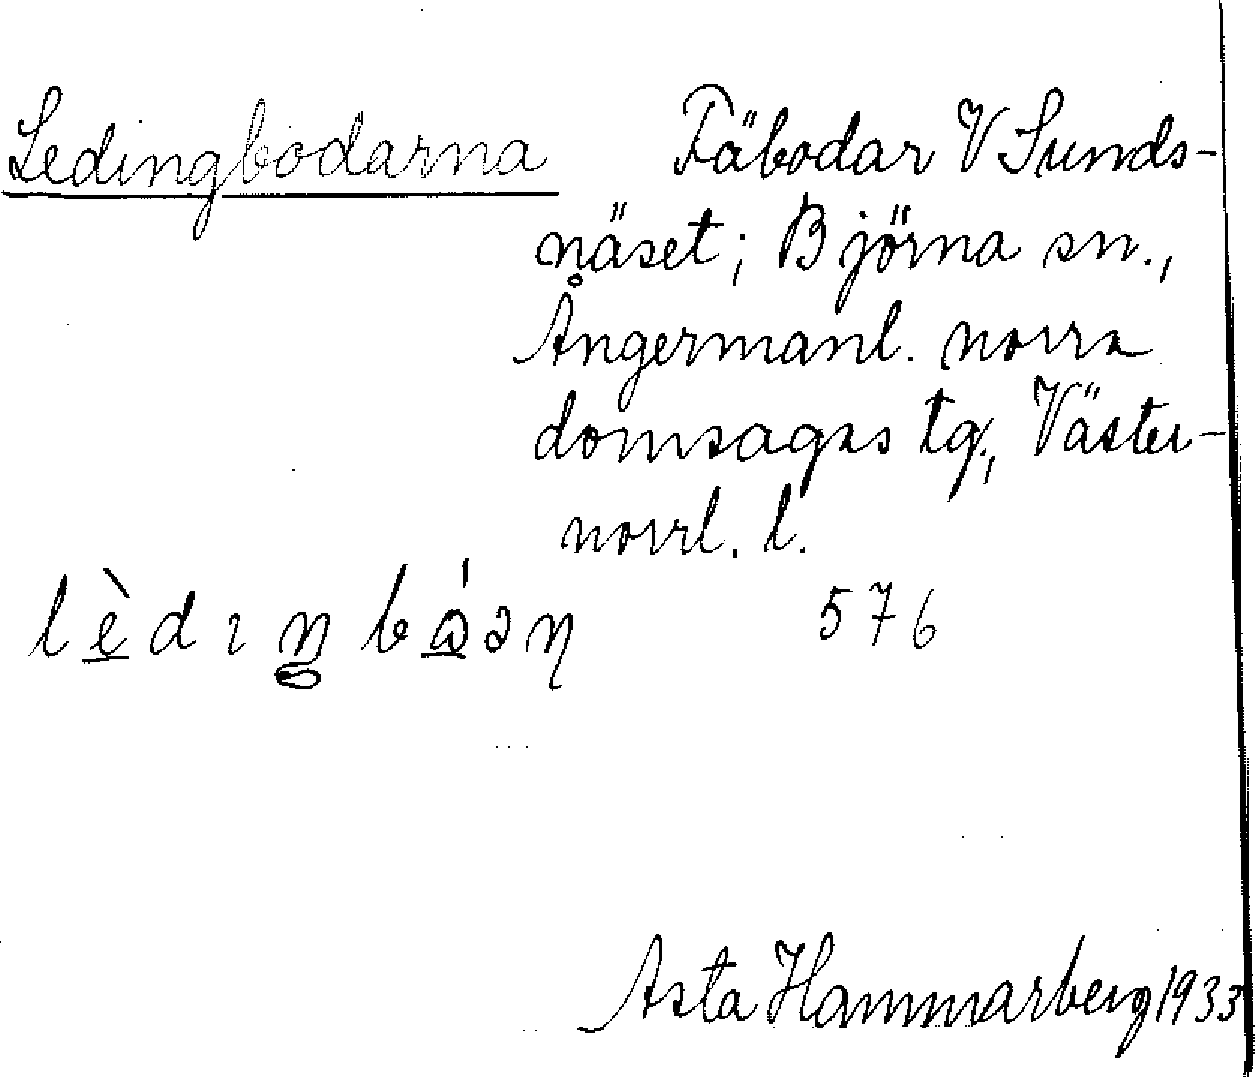 Ledingbodarna Fäbodar V Sunds-
näset; Björna sn.,
Ångermanl. norra
domsagas tg., Väster-
norrl. l.
lèdıŋbǻən 576
Asta Hammarberg 1933